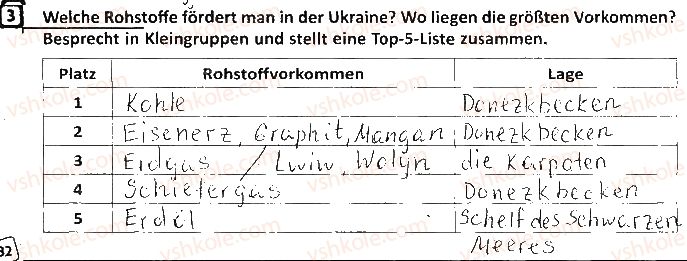 3 Welche Rohstoffe fördert man in der Ukraine? Wo liegen die größten Vorkommen?
Besprecht in Kleingruppen und stellt eine Top-5-Liste zusammen.
Platz Rohstoffvorkommen Lage
1 Kohle Donezkbecken
2 Eisenerz, Graphit, Mangan Donezkbecken
3 Erdgas / Lwiw, Wolyn die Karpaten
4 Schiefergas Donezkbecken
5 Erdöl Schelf des Schwarzen
Meeres
32